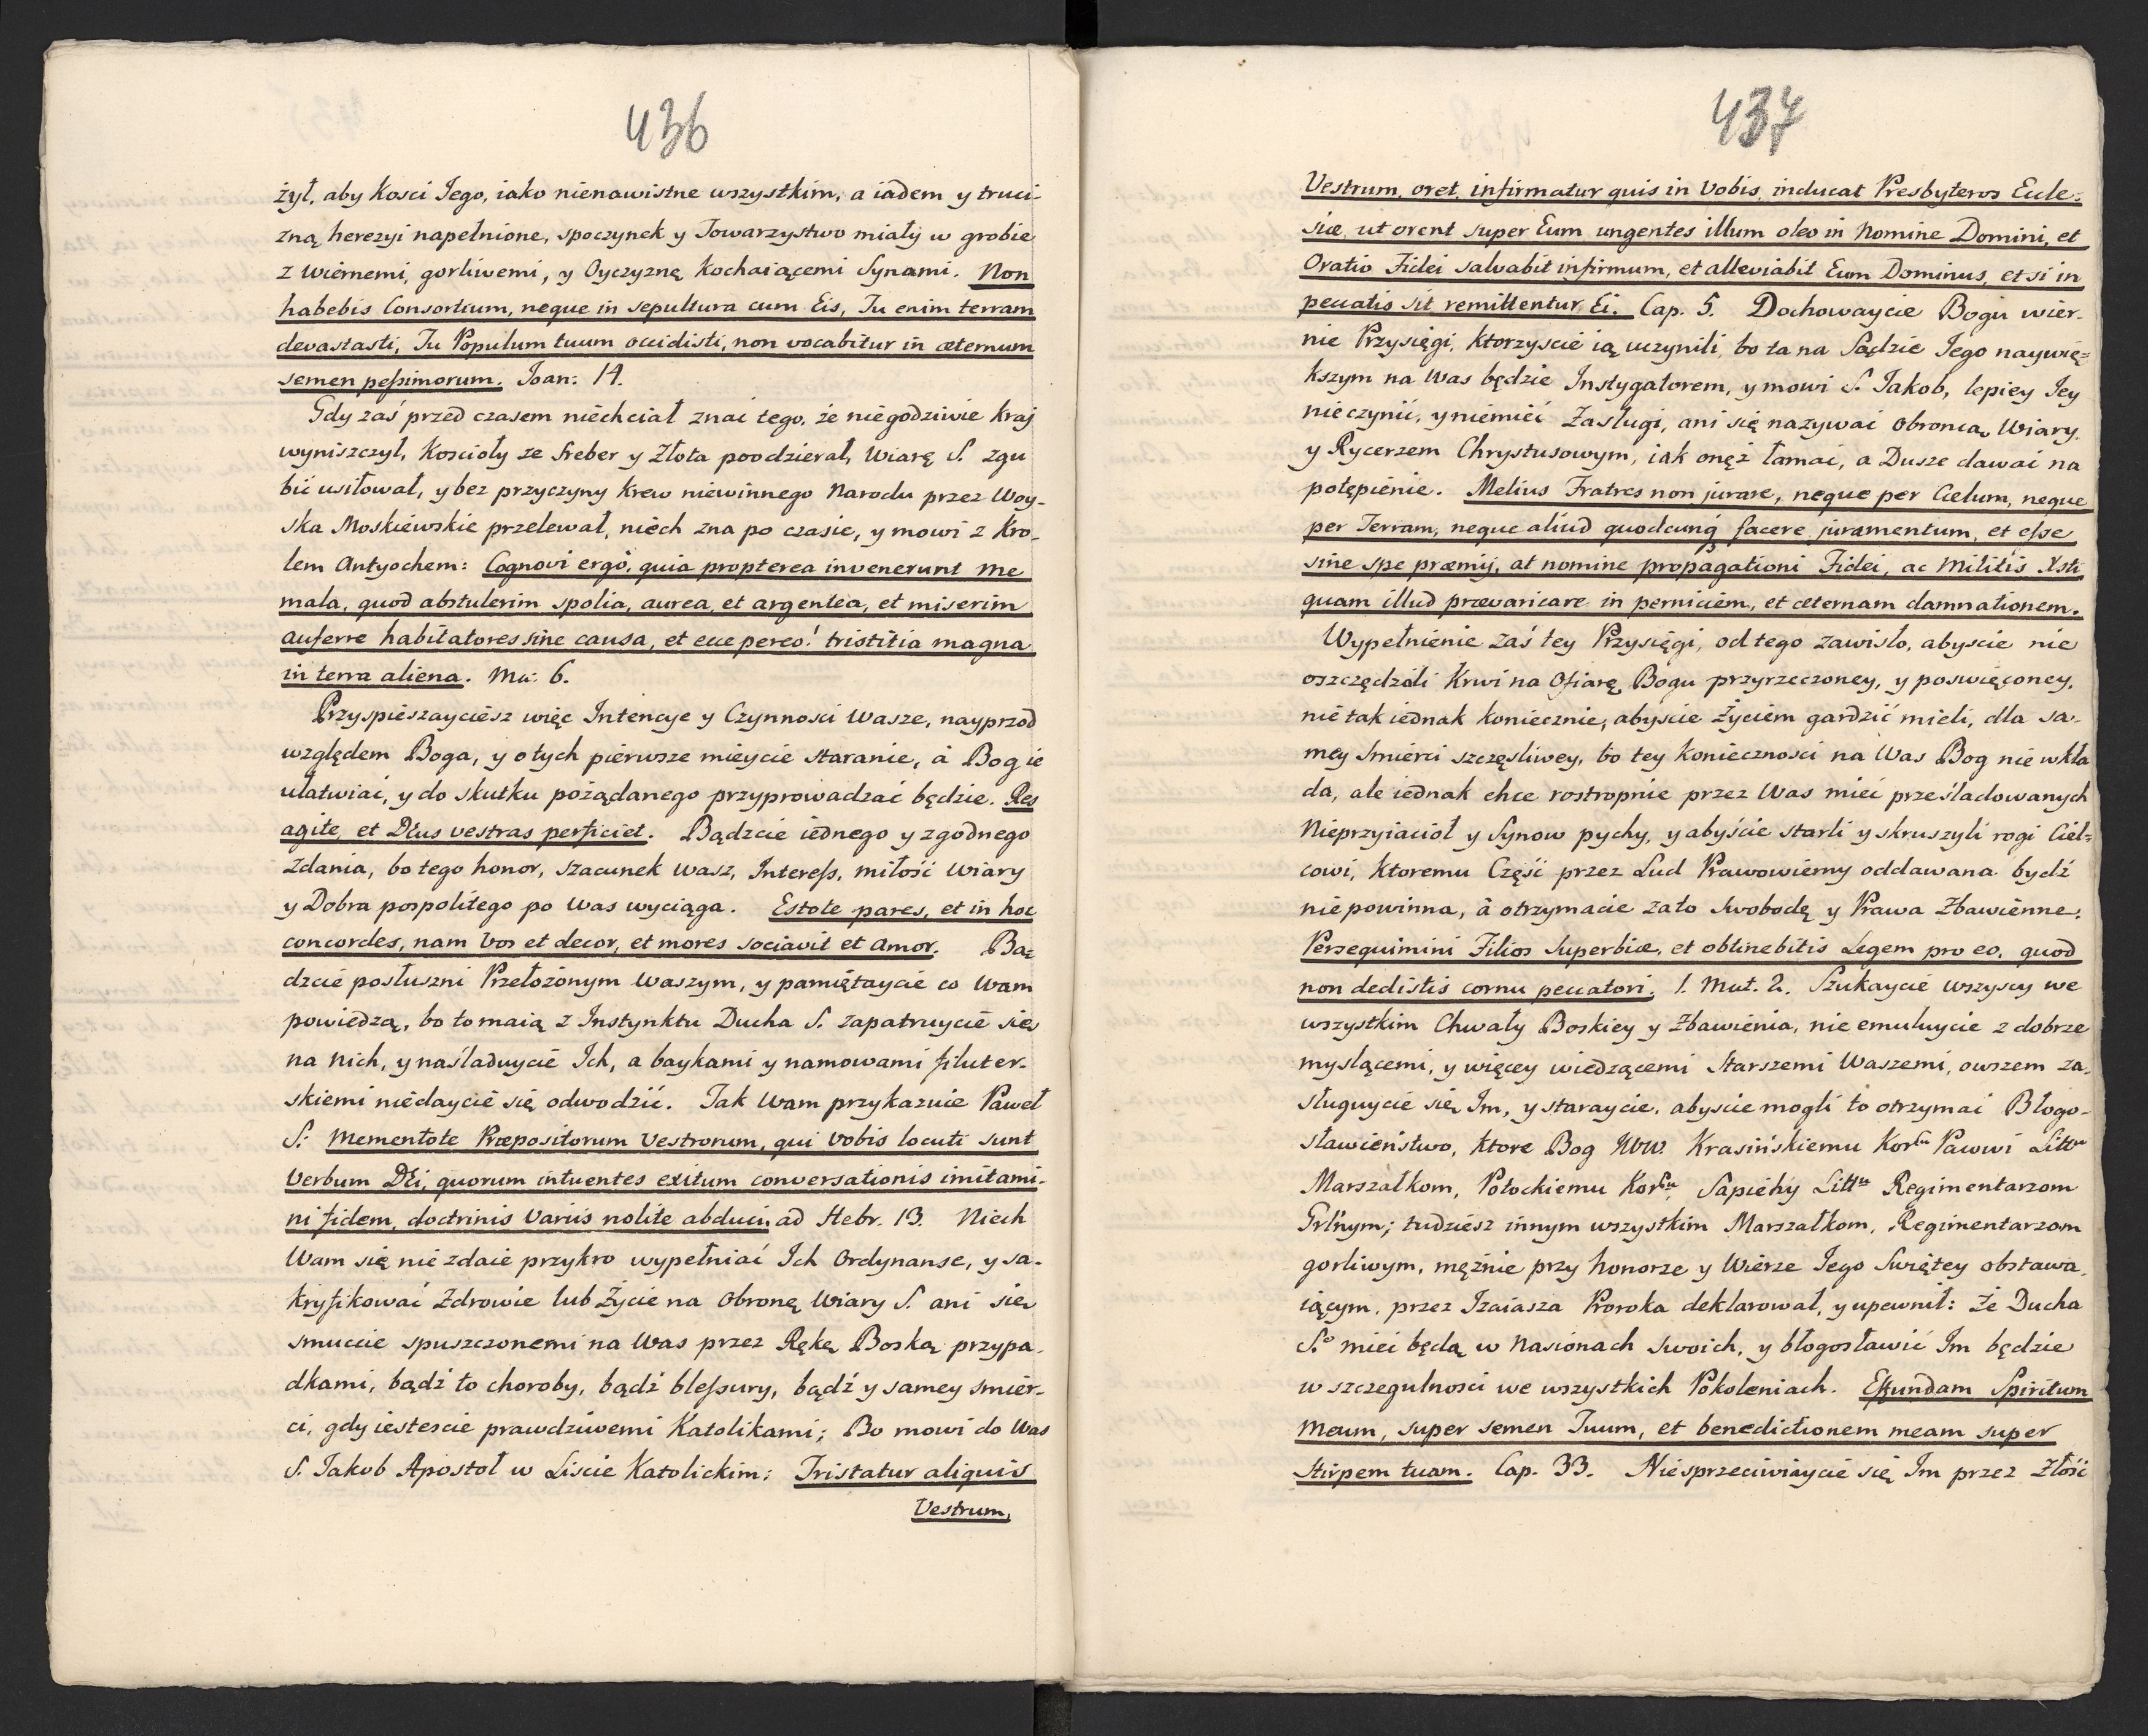 436
żył, aby Kosci Jego, iako nienawistne wszystkim, a iadem y truci-
zną herezyi napełnione, spoczynek y Towarzystwo miały w grobie
z wiernemi, gorliwemi, y Oyczyznę Kochaiącemi Synami. Non
habebis Consortium, neque in sepultura cum Eis, Tu enim terram
devastasti, Tu Populum tuum occidisti, non vocabitur in æternum
semen peſsimorum. Joan: 14.
Gdy zaś przed czasem niechciał znać tego, że niegodziwie Kraj
wyniszczył, Koscioły ze Sreber y Złota poodzierał, Wiarę S. zgu
bić usiłował, y bez przyczyny Krew niewinnego Narodu przez Woy-
ska Moskiewskie przelewał, niech zna po czasie, y mowi z Kro-
lem Antyochem: Cognovi ergò, quia propterea invenerunt me
mala, quod abstulerim spolia, aurea, et argentea, et miserim
auferre habitatores sine causa, et ecce pereo! tristitia magna
in terra aliena. Ma: 6.
Przyspieszayciesz więc Intencye y Czynnosci Wasze, nayprzod
względem Boga, y o tych pierwsze mieycie staranie, à Bog ie
ułatwiać, y do skutku pożądanego przyprowadzać będzie. Res
agite, et Deus vestras perficiet. Bądzcie iednego y zgodnego
Zdania, bo tego honor, szacunek wasz, Intereſs, miłość Wiary
y Dobra pospolitego po Was wyciąga. Estote pares, et in hoc
concordes, nam Vos et decor, et mores sociavit et Amor. Bą-
dzcie posłuszni Przełożonym Waszym, y pamiętaycie co Wam
powiedzą, bo to maią z Instynktu Ducha S. zapatruycie się
na Nich, y naśladuycie Ich, a baykami y namowami filuter-
skiemi niedaycie się odwodzić. Tak Wam przykazuie Paweł
S: Mementote Præpositorum Vestrorum, qui Vobis locuti sunt
Verbum Dei, quorum intuentes exitum conversationis imitami-
ni fidem, doctrinis Variis nolite abduci. ad Hebr. 13. Niech
Wam się nie zdaie przykro wypełniać Ich Ordynanse, y sa-
kryfikować Zdrowie lub Życie na Obronę Wiary S. ani się
smuccie spuszczonemi na Was przez Rękę Boską przypa-
dkami, bądź to choroby, bądź bleſsury, bądź y samey smier-
ci, gdy iestescie prawdziwemi Katolikami; Bo mowi do Was
S. Jakob Apostoł w Liscie Katolickim: Tristatur aliquis
Vestrum,
437
Vestrum, oret, infirmatur quis in Vobis, inducat Presbyteros Eccle-
siæ, ut orent super Eum ungentes illum oleo in Nomine Domini, et
Oratio Fidei salvabit infirmum, et alleviabit Eum Dominus, et si in
peccatis sit remittentur Ei. Cap. 5. Dochowaycie Bogu wier-
nie Przysięgi, Ktorzyscie ią uczynili, bo ta na Sądzie Jego naywię-
kszym na Was będzie Instygatorem, y mowi S. Jakob, lepiey Jey
nie czynić, y niemieć Zasługi, ani się nazywać Obroncą Wiary,
y Rycerzem Chrystusowym, iak onęż łamać, a Dusze dawać na
potępienie. Melius Fratres non jurare, neque per Cælum, neque
per Terram, neque aliud quodcunq facere juramentum, et eſse
sine spe præmij, at nomine propagationi Fidei, ac Militis Xsti
quam illud prævaricare in perniciem, et æternam damnationem.
Wypełnienie zaś tey Przysięgi, od tego zawisło, abyscie nie
oszczędzali Krwi na Ofiarę Bogu przyrzeczoney, y poswięconey,
nie tak iednak koniecznie, abyscie Życiem gardzić mieli, dla sa-
mey Smierci szczęsliwey, bo tey Koniecznosci na Was Bog nie wkła
da, ale iednak chce rostropnie przez Was mieć prześladowanych
Nieprzyiacioł y Synow pychy, y abyście starli y skruszyli rogi Ciel-
cowi, Ktoremu Część przez Lud Prawowierny oddawana bydź
nie powinna, à otrzymacie za to Swobodę y Prawa Zbawienne.
Persequimini Filios Superbiæ, et obtinebitis Legem pro eo, quod
non dedistis cornu peccatori. 1. Mat. 2. Szukaycie wszyscy we
wszystkim Chwały Boskiey y Zbawienia, nie emuluycie z dobrze
myslącemi, y więcey wiedzącemi Starszemi Waszemi, owszem za-
sługuycie się Im, y staraycie, abyscie mogli to otrzymać Błogo-
sławieństwo, Ktore Bog WW. Krasińskiemu Kor Pawwi Litt
Marszałkom, Potockiemu Kor Sapiehy Litt Regimentarzom
Grlnym; tudziesz innym wszystkim Marszałkom, Regimentarzom
gorliwym, mężnie przy honorze y Wierze Jego Swiętey obstawa-
iącym, przez Izaiasza Proroka deklarował, y upewnił: Że Ducha
S° mieć będą w Nasionach Swoich, y błogosławić Im będzie
w szczegulnosci we wszystkich Pokoleniach. Effundam Spiritum
Meum, super semen Tuum, et benedictionem meam super
Stirpem tuam. Cap. 33. Niesprzeciwiaycie się Im przez Złość